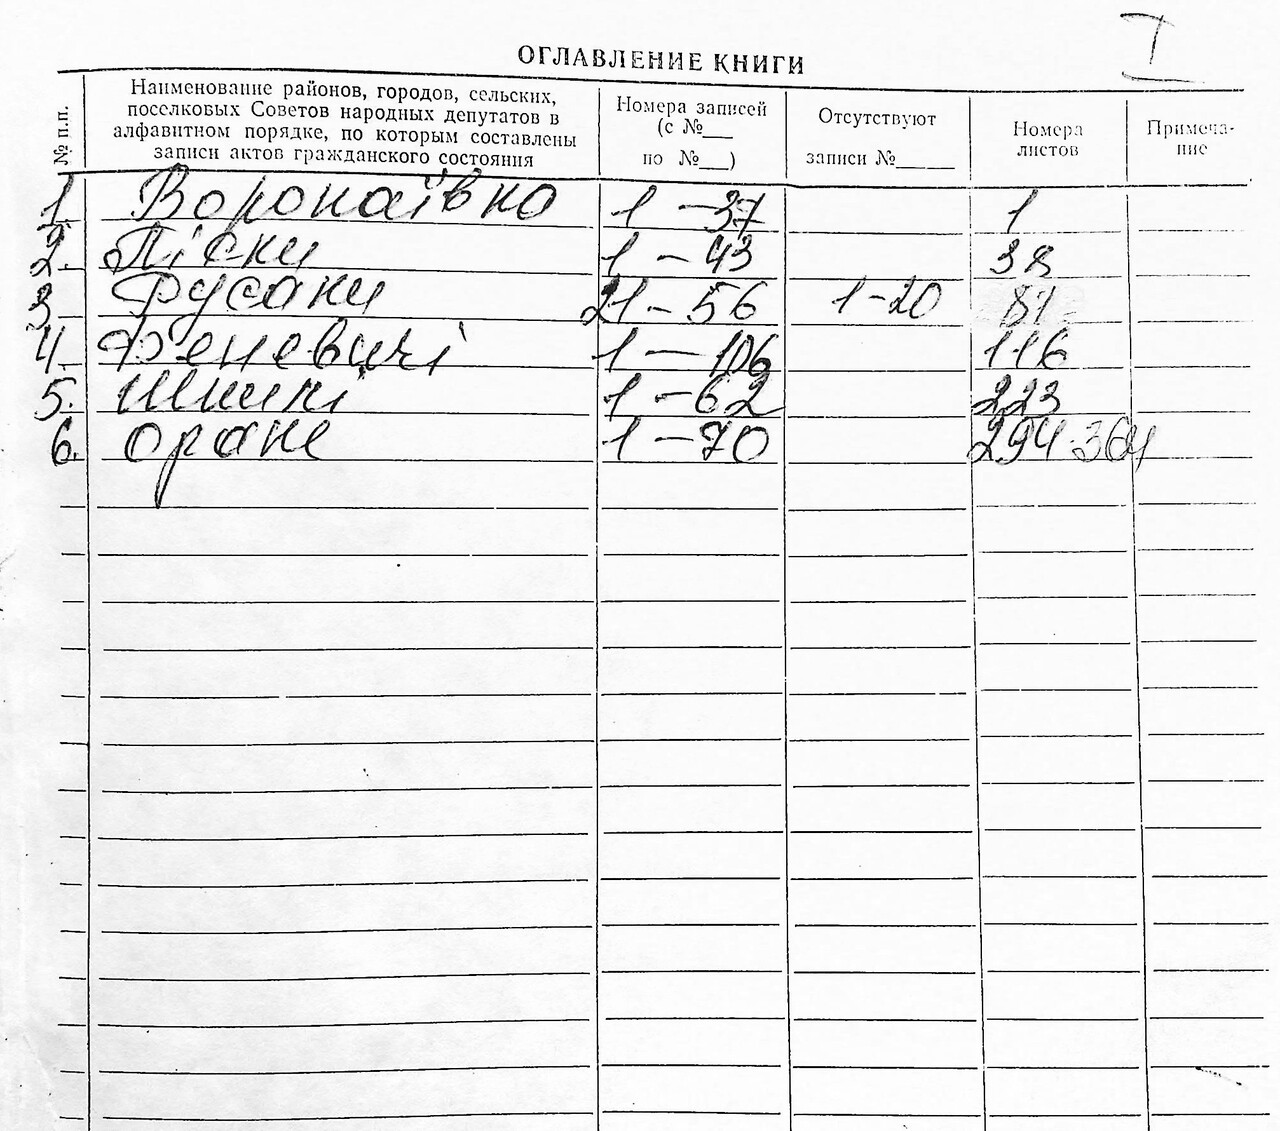 I
ОГЛАВЛЕНИЕ КНИГИ
№ п.п.
Наименование районов, городов, сельских,
поселковых Советов народных депутатов в
алфавитном порядке, по которым составлены
записи актов гражданского состояния
Номера записей
(с №__
по №__)
Отсутствуют
записи №_____
Номера
листов
Примеча-
ние
1. Воронаївка 1 - 37 1
2. Піски 1 - 43 38
3. Русаки 21 - 56 1-20 81
4. Феневичі 1 - 106 116
5. 1 - 62 223
6. Оране 1 - 70 294-364